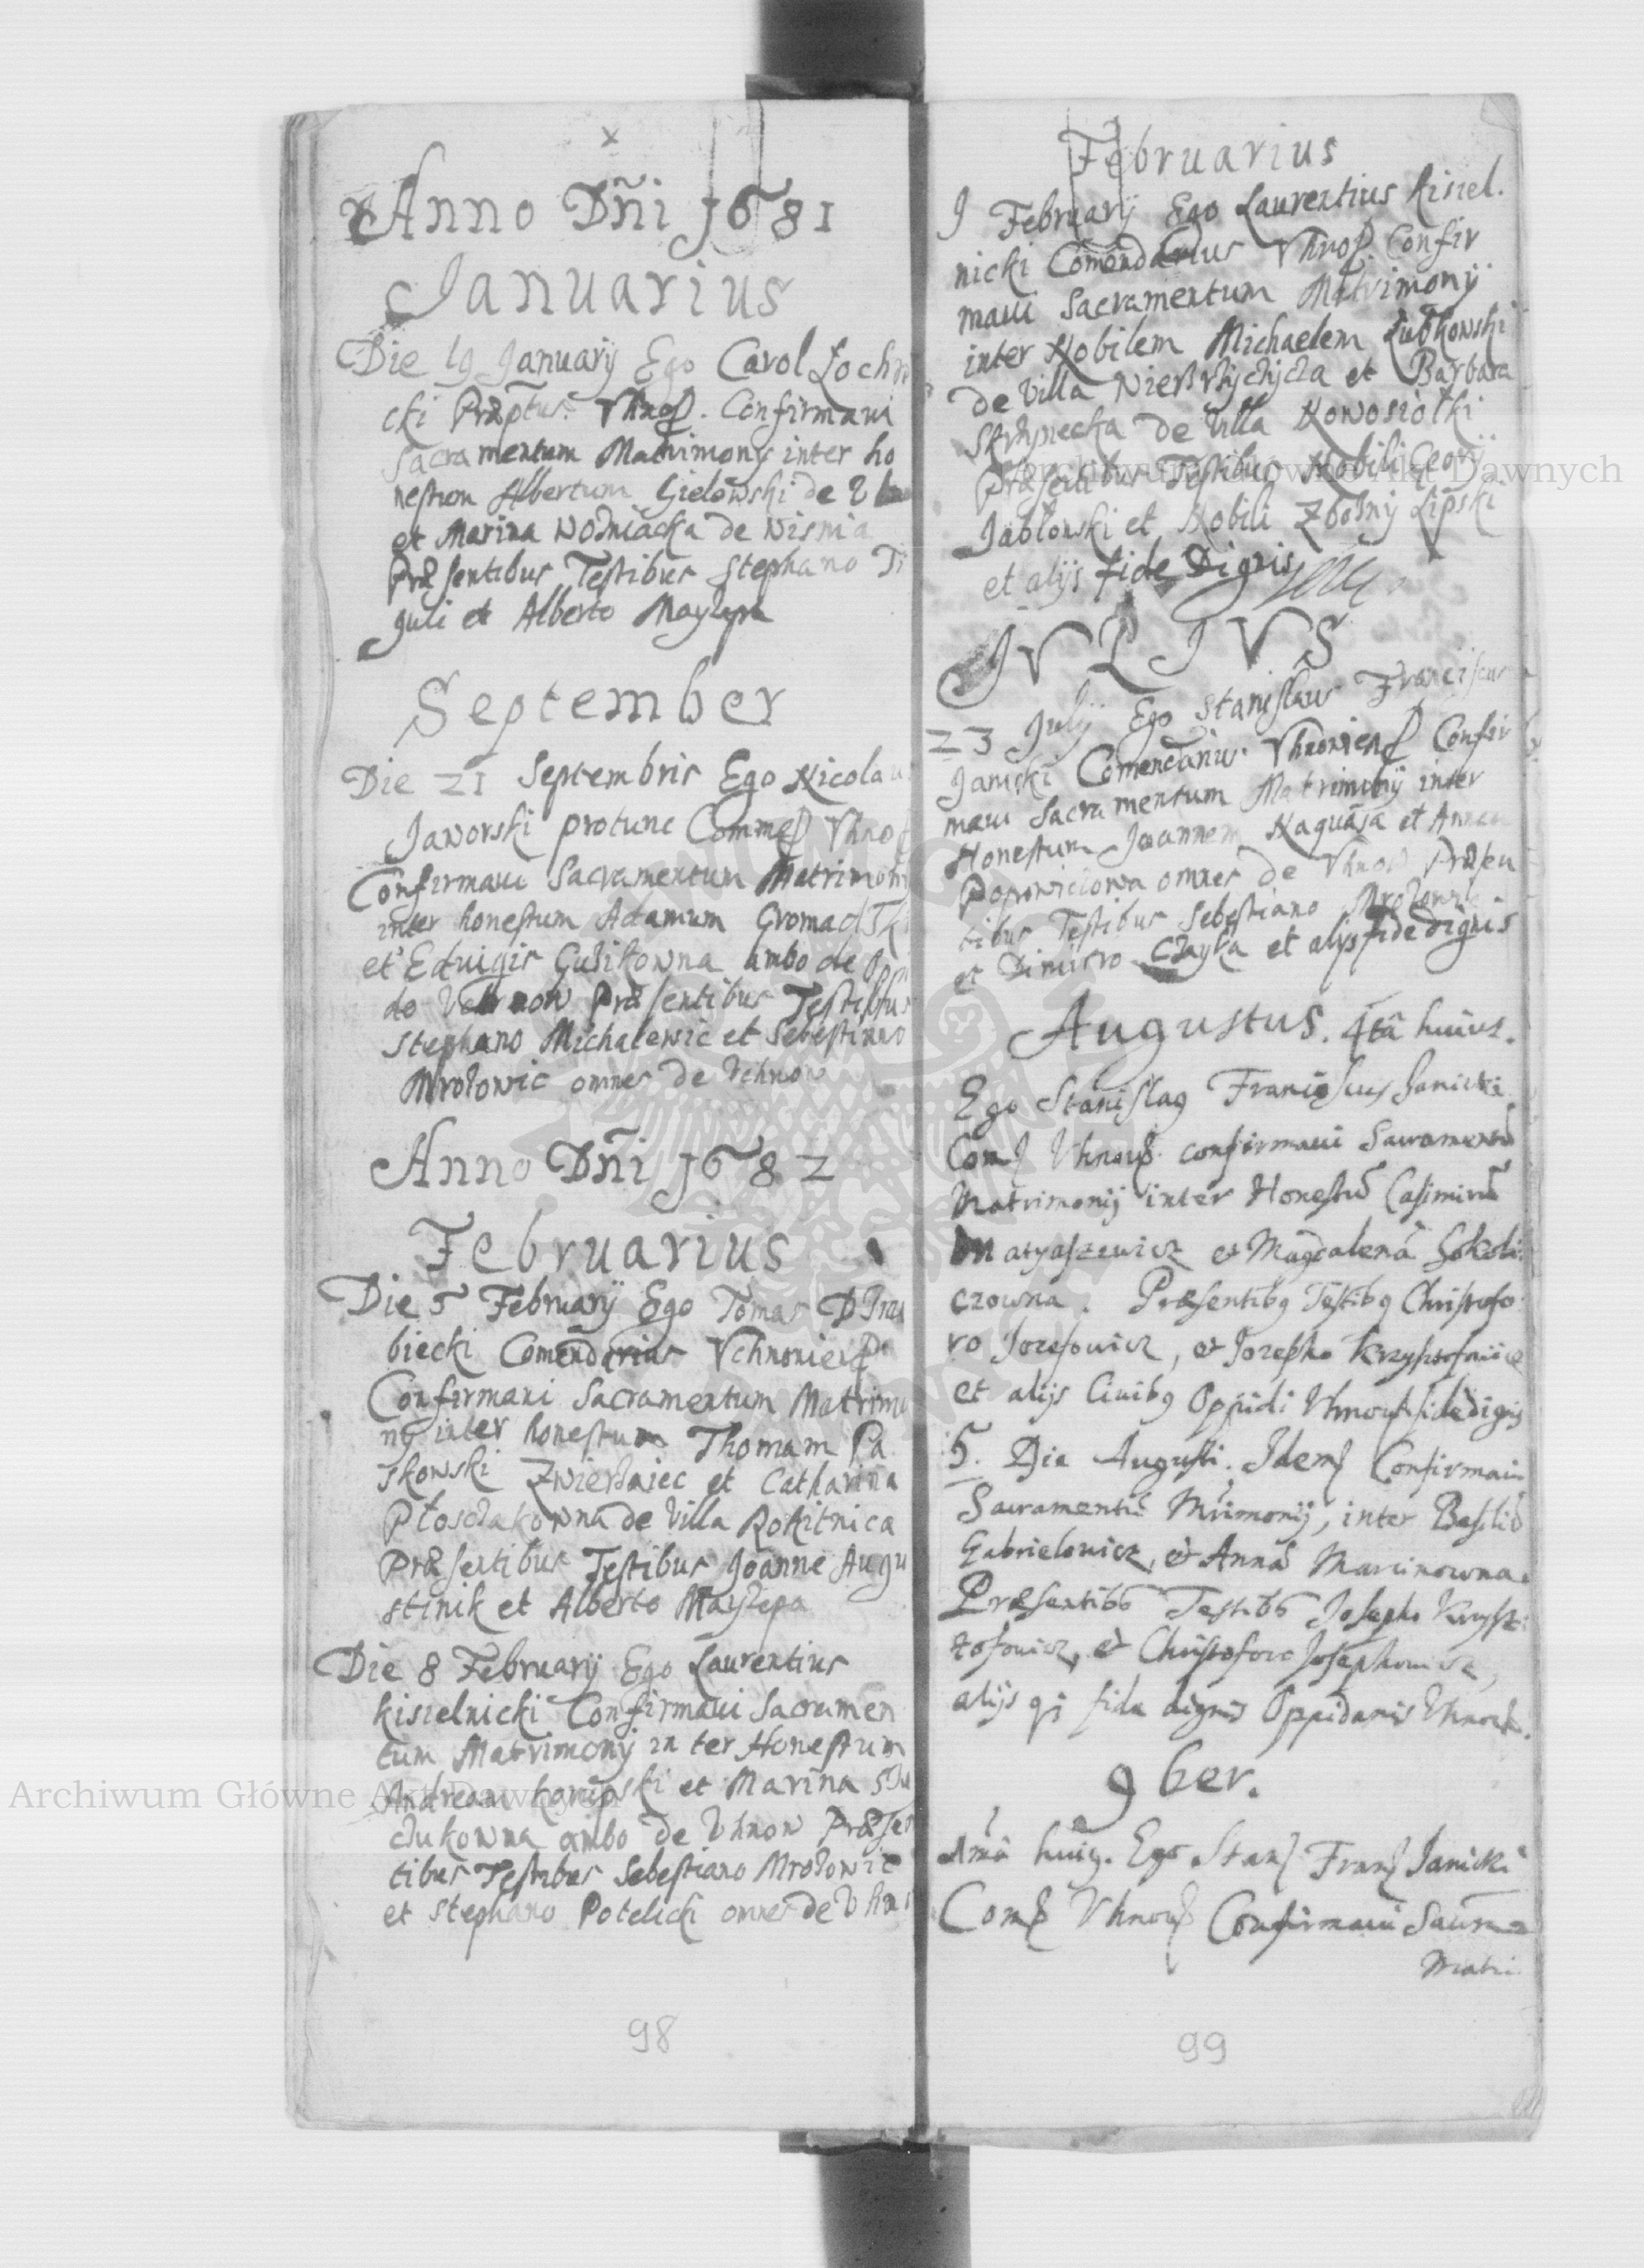 Anno Dñi 1681
Januarius
Die 19 Januarij Ego Carol Lochn
cki Præptus. Vhnoſ. Confirmavi
Sacramentum Matrimonij inter ho
nestum Albertum Gielowski de
et Marina Wozniacka de Wisnia
Præsentibus Testibus Stephano Ti
guli et Alberto Mayzepa
September
Die 21 Septembris Ego Nicolau
Jaworski protunc Commeſ Vhnoſ
Confirmavi Sacramentum Matrimonij
inter honestum Adamum Gromadzki
et Eduigis Guzikowna ambo de Oppi
do Præsentibus Testibus
Stephano Michalewic et Sebestiano
Mrozowic omnes de Vchnow
Anno Dñi 1682
Februarius
Die 5 Februarij Ego Tomas
biecki Comendarius Vchnovienſ
Confirmavi Sacramentum Matrimo
nij inter honestum Thomam Pa
skowski et Catharina
de Villa Rokitnica
Præsentibus Testibus Joanne Augu
stinik et Alberto Mayzepa
Die 8 Februarij Ego Laurentius
Kisielnicki Confirmavi Sacramen
tum Matrimonij inter Honestum
Andream et Marina
ambo de Vhnow Præsen
tibus Testibus Sebestiano Mrozowic
et Stephano Potelicki omnes de Vhno
98
Februarius
9 Februarij Ego Laurentius Kisiel.
nicki Comendarius Vhnoſ. Confir
mavi Sacramentum Matrimonij
inter Nobilem Michaelem Lubkowski
de Villa et Barbara
Skrzynecka de Villa Nowosiolki
Præsentibus Testibus Nobili Georgij
Jablonski et Nobili Lipski
et alijs fide Dignis
JVLIVS
23 Julij Ego Stanislaus Franciscus
Janicki Comendarius Vhnovienſ Confir
mavi Sacramentum Matrimonij inter
Honestum Joannem et Annam
Popowiczowa omnes de Vhnow Præsen
tibus Testibus Sebestiano Mrozowic
et Dimitro Czayka et alijs fide dignis
Augustus. 4tâ huius.
Ego Stanislaꝰ Franciscus Janicki
Comſ Vhnovſ. confirmavi Sacramentū
Matrimonij inter Honestū Casimirū
Matyaszewicz et Magdalenā Sokoli.
czowna. Præsentibꝰ Testibꝰ Christofo
ro Jozefowicz, et Josepho Krzysztofowicz
et alijs Civibꝰ Oppidi Vhnovſ fidedignis
5. Die Augusti. Idem Confirmavi
Sacramentū Mrimonij, inter Basiliū
Gabrielowicz, et Annā Marcinowna.
Præsentibꝰ Testibꝰ Josepho Krysz.
tofowicz, et Christoforo Josephowicz,
alijs qȝ fide dignis Oppidanis Vhnovſ.
9ber.
1mâ huiꝰ. Ego Stanſ Franſ Janicki
Comſ Vhnovſ Confirmavi Sacrm
Matri
99
Archiwum Główne Akt Dawnych
Archiwum Główne Akt Dawnych